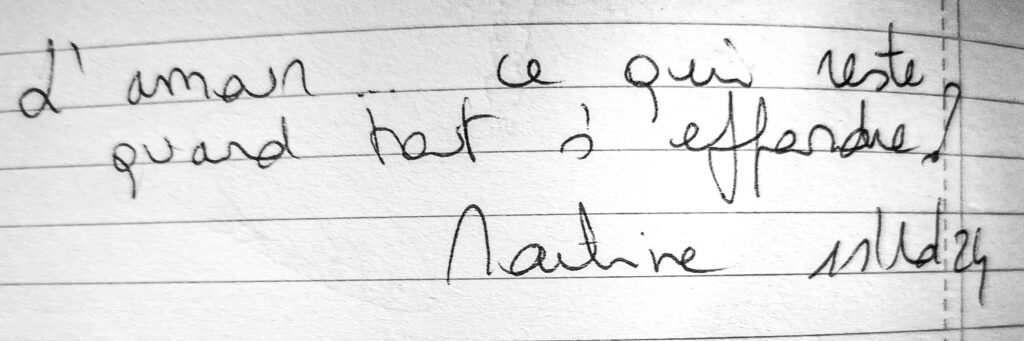 L'amour... ce qui reste
quand tout s'effondre!
Martine